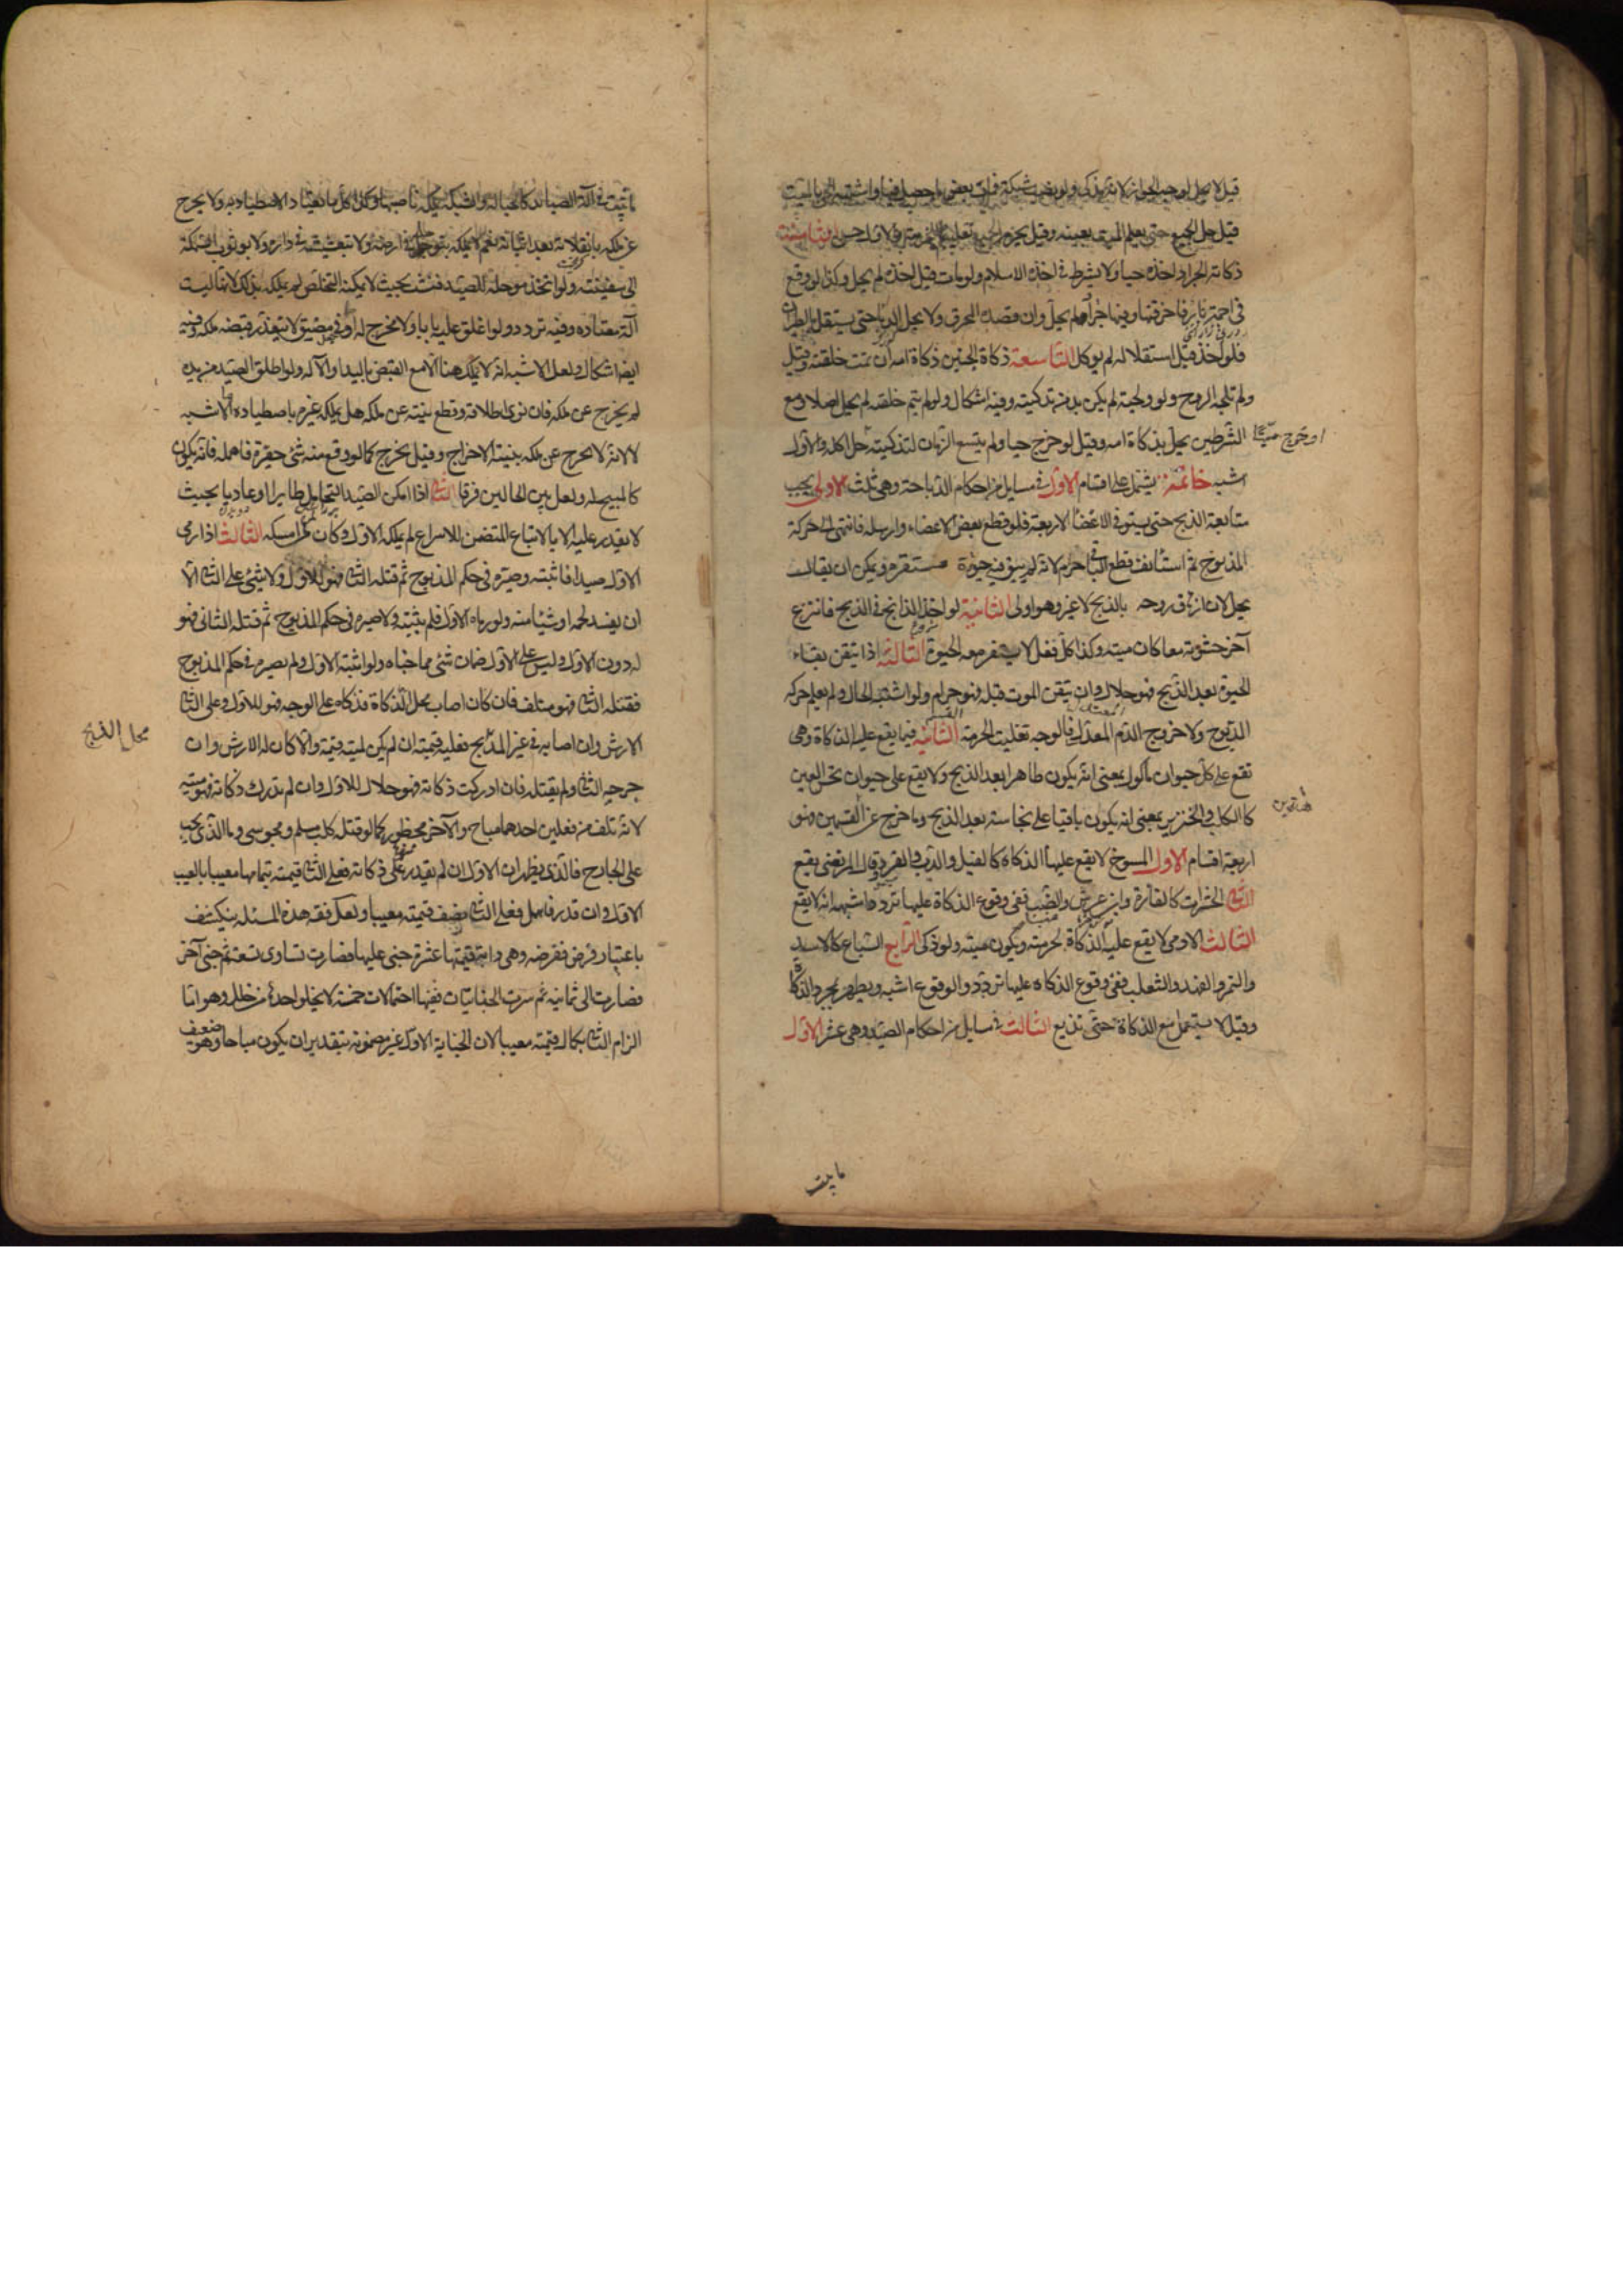 قيل لا يحل لوجب الجواز لانه يذكى ولو نصب شبكة فمات بعض ما حصل فيها واشتبه الحى بالميت
قيل حل الجميع حتى يعلم الميت بعينه وقيل يحرم الجميع تغليبا للحرمة والاول حسن الثامنة
ذكاة الجراد اخذه حيا ولا يشترط فى اخذه الاسلام ولو مات قبل اخذه لم يحل وكذا لو وقع
فى اجمة نار فاحرقتها وفيها جراد لم يحل وان قصده المحرق ولا يحل الدبا حتى يستقل بالطيران
فلو اخذ قبل استقلاله لم يوكل التاسعة ذكاة الجنين ذكاة امه ان تمت خلقته وقيل
ولم تلجه الروح ولو ولجته لم يكن بد من تذكيته وفيه اشكال ولو لم يتم خلقه لم يحل اصلا ومع
الشرطين يحل بذكاة امه وقيل لو خرج حيا ولم يتسع الزمان لتذكيته حل اكله والاول
او خرج ميتا
اشبه خاتمة يشتمل على اقسام الاول فى مسايل من احكام الذباحة وهى ثلث الاولى يجب
متابعة الذبح حتى يستوفى الاعضا الاربعة فلو قطع بعض الاعضاء وارسله فانتهى الى حركة
المذبوح ثم استأنف قطع الباقى حرم لانه لم يبق فيه حيوة مستقرة ويمكن ان يقال
يحل لان ازهاق روحه بالذبح لا غير وهو اولى الثانية لو اخذ الذابح فى الذبح فانتزع
آخر حشوته معا كان ميته وكذا كل فعل لا يستقر معه الحيوة الثالثة اذا تيقن بقاء
الحيوة بعد الذبح فهو حلال وان تيقن الموت قبله فهو حرام ولو اشتبه الحال ولم يعلم حركة
المذبوح ولا خروج الدم المعتدل فالوجه تغليب الحرمة القسم الثانية فيما يقع عليه الذكاة وهى
تقع على كل حيوان مأكول بمعنى انه يكون طاهرا بعد الذبح ولا يقع على حيوان نجس العين
كالكلب والخنزير بمعنى انه يكون باقيا على نجاسته بعد الذبح وما خرج عن القسمين فهو
اربعة اقسام الاول المسوخ لا يقع عليها الذكاة كالفيل والدب والقرد وقال المرتضى يقع
الثانى الحشرات كالفأرة وابن عرس والضب ففى وقوع الذكاة عليها تردد اشبهه انه لا يقع
الثالث الادمى لا يقع عليه الذكاة لحرمته ويكون ميته ولو ذكى الرابع السباع كالاسد
والنمر والفهد والثعلب ففى وقوع الذكاة عليها تردد والوقوع اشبه ويطهر بمجرد الذكاة
وقيل لا يستعمل مع الذكاة حتى تدبغ الثالث فى مسايل من احكام الصيد وهى عشر الاول
ما يثبت
ما يثبت فى آلة الصياد كالحبالة والشبكة يملكه ناصبها وكذا كل ما يعتاد الاصطياد به ولا يخرج
عن ملكه بانفلاته بعد اثباته نعم لا يملكه بتوحله فى ارضه ولا بتعشيشه فى داره ولا بوثوب السمكة
الى سفينته ولو اتخذ موحلة للصيد فنشب بحيث لا يمكنه التخلص لم يملكه بذلك لانها ليست
آلة معتادة وفيه تردد ولو اغلق عليه بابا ولا مخرج له او فى مضيق لا يتعذر قبضه ملكه وفيه
ايضا اشكال ولعل الاشبه انه لا يملك هنا الا مع القبض باليد او الآلة ولو اطلق الصيد من يده
لم يخرج عن ملكه فان نوى اطلاقه وقطع نيته عن ملكه هل يملكه غيره باصطياده الاشبه
لا لانه لا يخرج عن ملكه بنية الاخراج وقيل يخرج كما لو وقع منه شئ حقير فاهمله فانه يكون
كالمبيح له ولعل بين الحالين فرقا الثانى اذا امكن الصيد التحامل طايرا او عاديا بحيث
لا يقدر عليه الا بالاتباع المتضمن للاسراع لم يملكه الاول وكان لمن امسكه الثالث اذا رمى
الاول صيدا فاثبته وصيره فى حكم المذبوح ثم قتله الثانى فهو للاول ولا شئ على الثانى الا
ان يفسد لحمه او شيئا منه ولو رماه الاول فلم يثبته ولا صيره فى حكم المذبوح ثم قتله الثانى فهو
له دون الاول وليس على الاول ضمان شئ مما جناه ولو اثبته الاول ولم يصيره فى حكم المذبوح
فقتله الثانى فهو متلف فان كان اصاب محل الذكاة فذكاه على الوجه فهو للاول وعلى الثانى
الارش وان اصابه فى غير المذبح فعليه قيمته ان لم يكن لميته قيمة والا كان له الارش وان
محل الذبح
جرحه الثانى ولم يقتله فان ادركت ذكاته فهو حلال للاول وان لم تدرك ذكاته فهو ميته
لانه تلف من فعلين احدهما مباح والآخر محظور كما لو قتله كلب مسلم ومجوسى وما الذى يجب
على الجارح فالذى يظهر ان الاول ان لم يقدر على ذكاته فعلى الثانى قيمته بتمامها معيبا بالعيب
الاول وان قدر فاهمل فعلى الثانى نصف قيمته معيبا ولعل فقه هذه المسئلة ينكشف
باعتبار فرض نفرضه وهى دابة قيمتها عشرة جنى عليها فصارت تساوى تسعة ثم جنى آخر
فصارت الى ثمانية ثم سرت الجنايتان ففيها احتمالات خمسة لا يخلو احدها من خلل وهو اما
الزام الثانى بكمال قيمته معيبا لان الجناية الاولى غير مضمونة بتقدير ان يكون مباحا وهو ضعيف